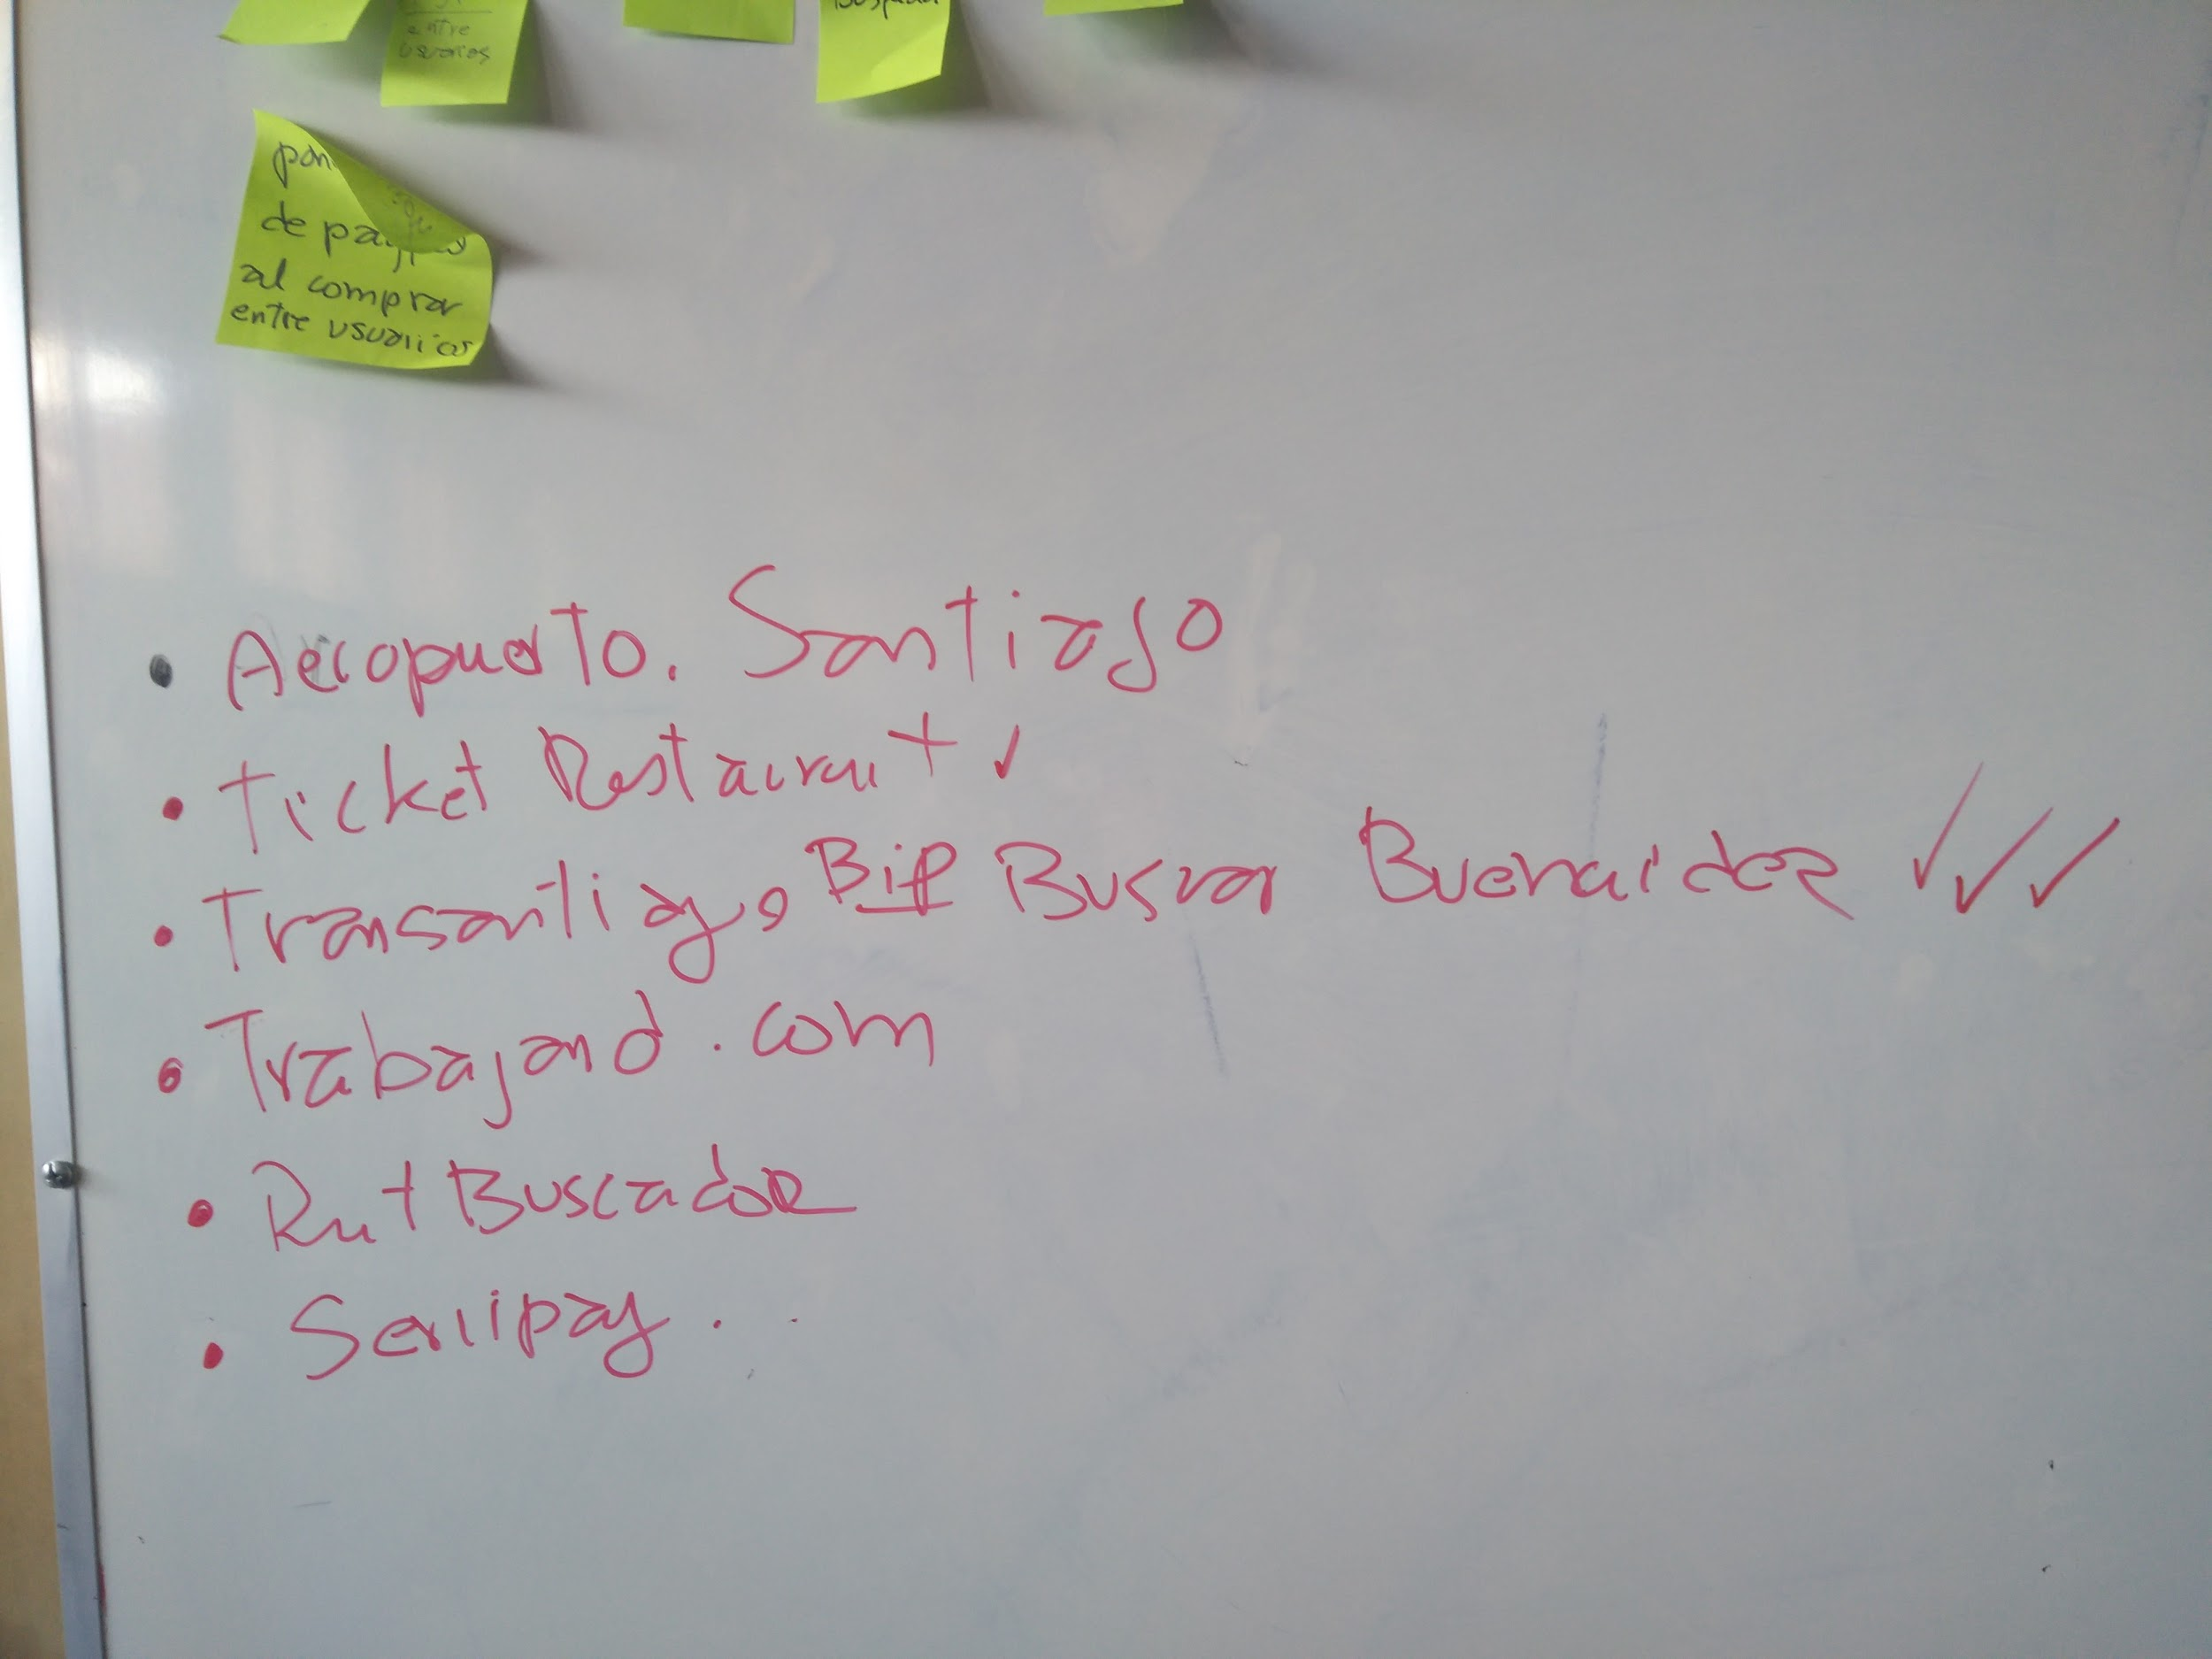 entre
usuarios
de
al comprar
entre usuarios
• Aeropuerto. Santiago
• Ticket Restaurant ✓
• Transantiago Bip Buscar ✓✓✓
• Trabajand.com
• Rut Buscador
• Servipay . .